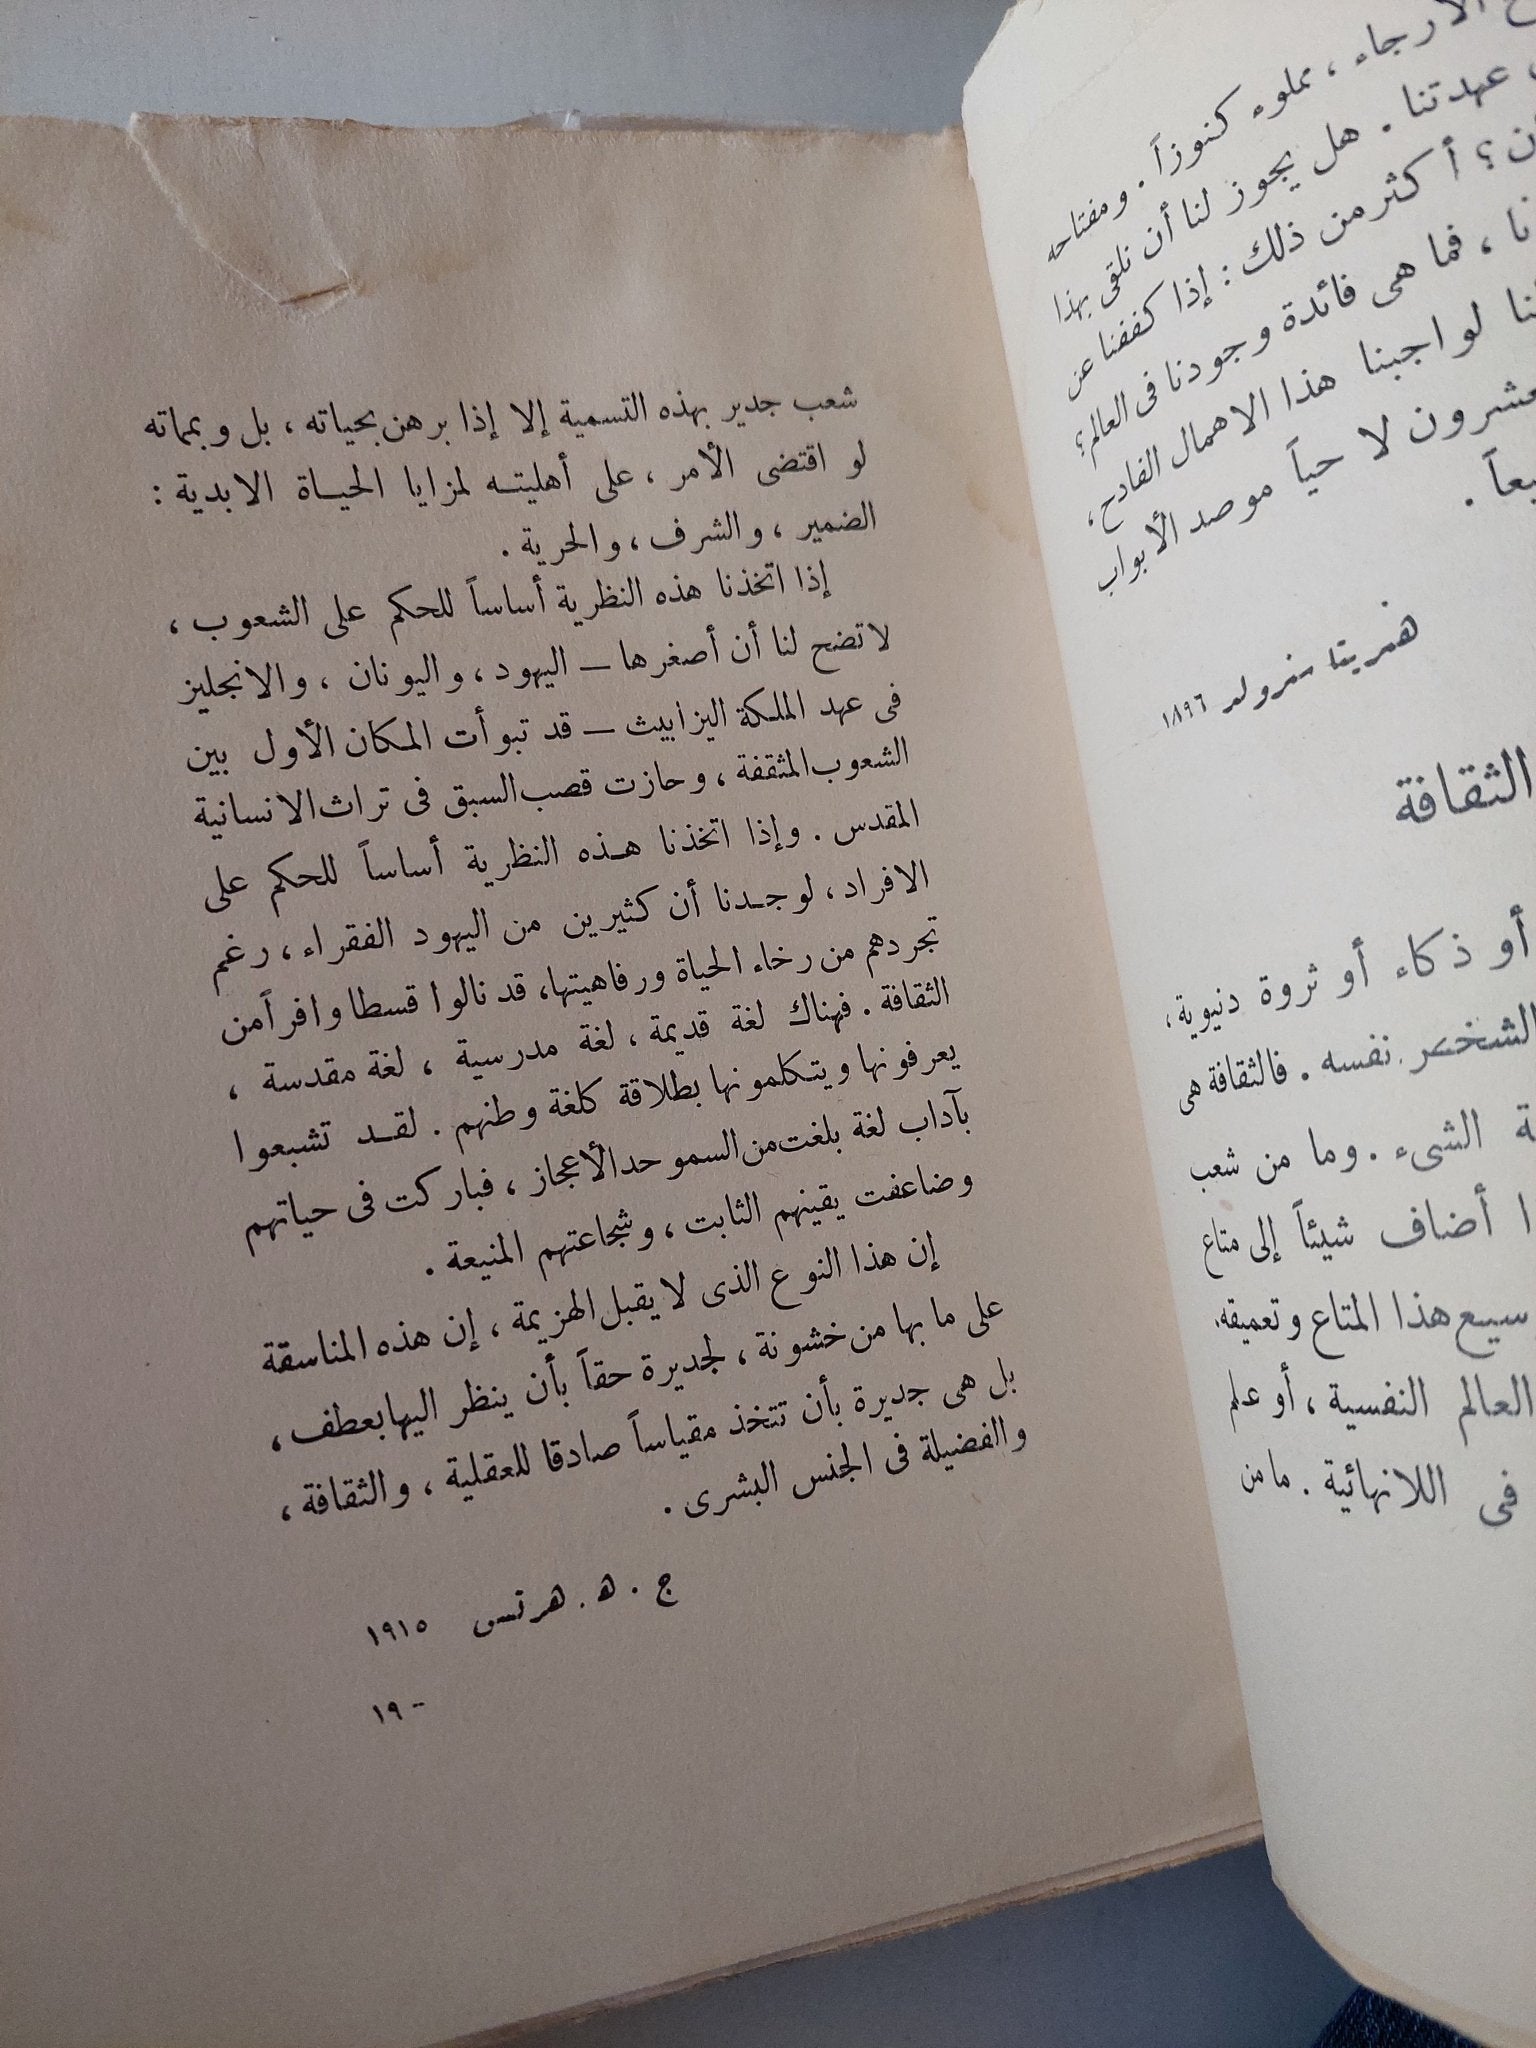 الأرجاء ، مملوء كنوزاً . ومفتاحه
عهدتنا . هل يجوز لنا أن نلقى بهذا
؟ أكثر من ذلك : إذا كففنا عن
، فما هى فائدة وجودنا فى العالم ؟
لواجبنا هذا الاهمال الفادح ،
لا حياً موصد الأبواب
هنريتا سزولد ١٨٩٦
الثقافة
أو ذكاء أو ثروة دنيوية ،
الشخص نفسه . فالثقافة هى
الشىء . وما من شعب
أضاف شيئاً إلى متاع
هذا المتاع وتعميقه .
العالم النفسية ، أو علم
فى اللانهائية . ما من
شعب جدير بهذه التسمية إلا إذا برهن بحياته ، بل وبمماته
لو اقتضى الأمر ، على أهليته لمزايا الحياة الابدية :
الضمير ، والشرف ، والحرية .
إذا اتخذنا هذه النظرية أساساً للحكم على الشعوب ،
لاتضح لنا أن أصغرها — اليهود ، واليونان ، والانجليز
فى عهد الملكة اليزابيث — قد تبوأت المكان الأول بين
الشعوب المثقفة ، وحازت قصب السبق فى تراث الانسانية
المقدس . وإذا اتخذنا هذه النظرية أساساً للحكم على
الافراد ، لوجدنا أن كثيرين من اليهود الفقراء ، رغم
تجردهم من رخاء الحياة ورفاهيتها ، قد نالوا قسطا وافراً من
الثقافة . فهناك لغة قديمة ، لغة مدرسية ، لغة مقدسة ،
يعرفونها ويتكلمونها بطلاقة كلغة وطنهم . لقد تشبعوا
بآداب لغة بلغت من السمو حد الأعجاز ، فباركت فى حياتهم
وضاعفت يقينهم الثابت ، وشجاعتهم المنيعة .
إن هذا النوع الذى لا يقبل الهزيمة ، إن هذه المناسقة
على ما بها من خشونة ، لجديرة حقاً بأن ينظر اليها بعطف ،
بل هى جديرة بأن تتخذ مقياساً صادقا للعقلية ، والثقافة ،
والفضيلة فى الجنس البشرى .
ج . ه . هرتس ١٩١٥
١٩٠